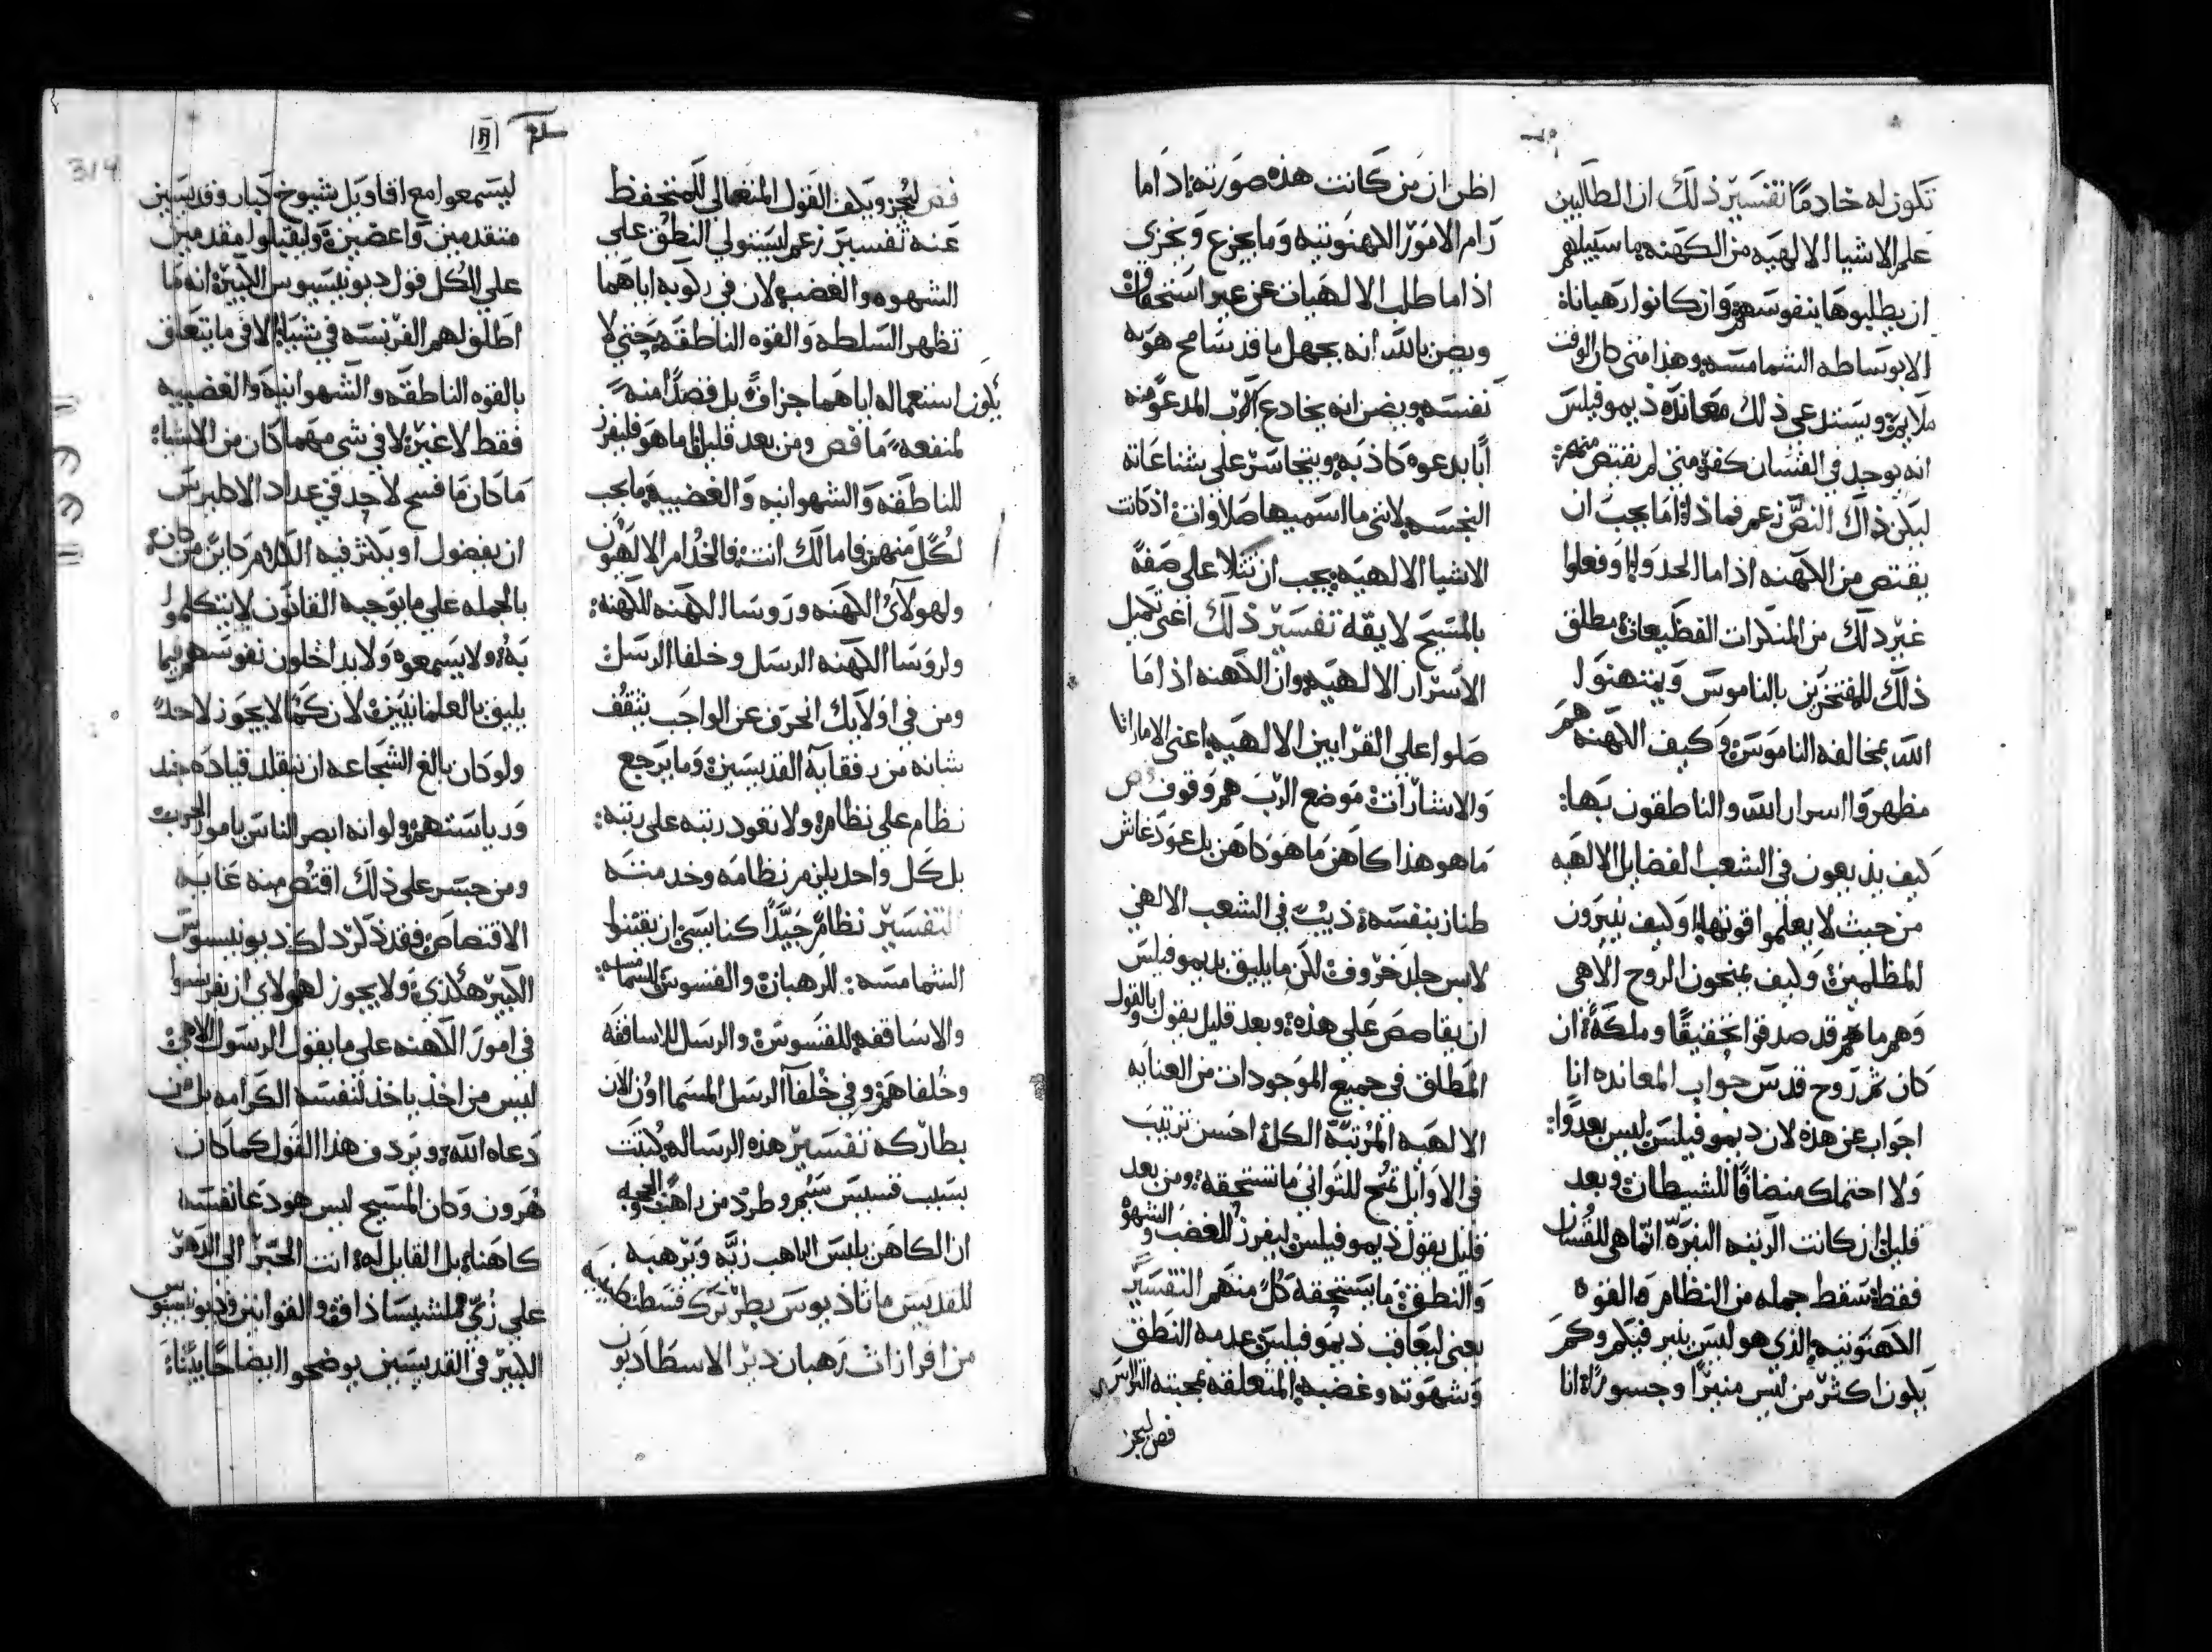 تكون له خادمًا تفسير ذلك ان الطالبين
علم الاشيا الالهيه من الكهنه ما سبيلهم
ان يطلبوها بنفوسهم وان كانوا رهبانا
الا بوساطه الشمامسه وهذا متى كان الوقت
ملايم ويستدعى ذلك معانده ذيموفيلس
انه يوجد في القسان كفره متى لم يقتص منهم
ليكن ذاك النص زعم فماذا اما يجب ان
يقتص من الكهنه اذا ما الحدوا او فعلوا
غير ذلك من المنكرات الفظيعات مطلق
ذلك للمفتخرين بالناموس ويمتهنوا
الله بمخالفه الناموس وكيف الكهنه هم
مظهروا اسرار الله والناطقون بها:
كيف يذيعون في الشعب الفضايل الالهيه
من حيث لا يعلموا قوتها او كيف ينيرون
المظلمين وكيف يمنحون الروح الالهي
وهم ما هم قد صدقوا تحقيقًا وملكة ان
كان ثم روح قدس جواب المعانده انا
اجواب عن هذه لان ديموفيلس ليس بعدوا:
ولا احتملك منضافًا للشيطان وبعد
قليل ان كانت الرتبه النيره انما هي للقسان
فقط تسقط جمله من النظام والقوه
الكهنوتيه الذي هو ليس بنير فبكم وكم
يكون اكثر من ليس منيرًا وجسورًا انا
اظن ان من كانت هذه صورته اذا ما
رام الامور الكهنوتيه وما يجزع ويخزي
اذا ما طلب الالهيات عن غير استحقاق
ويظن بالله انه يجهل ما قد سامح هو به
نفسه ويضن انه يخادع الرب المدعو منه
ابًا بدعوه كاذبه ويتجاسر على شناعاته
النجسه لانني ما اسميها صلاوات اذ كانت
الاشيا الالهيه يجب ان تتلا على صفة
بالمسيح لايقه تفسير ذلك اعنى تكميل
الاسرار الالهيه وان الكهنه اذا ما
صلوا على القرابين الالهيه اعنى الامارات
والاشارات موضع الرب هم وقوف
ما هو هذا كاهن ما هو كاهن بل عود غاش
طناز بنفسه ذيب في الشعب الالهي
لابس جلد خروف لكن ما يليق بديموفيلس
ان يقاصص على هذه وبعد قليل يقول بالقول
المطلق في جميع الموجودات من العنايه
الالهيه المرتبة الكل احسن ترتيب
في الاوايل تمنح للثواني ما تستحقه ومن بعد
قليل يقول ذيموفيلس ليفرز للغضب والشهوة
والنطق ما يستحقه كل منهم التفسير
يعنى ليعاقب ذيموفيلس عدمه النطق
وشهوته وغضبه المتعلقه بمحبته التراس
فض ليحز
ويكف القول المتعالي للمتحفظ
عنه تفسير زعم ليستولي النطق على
الشهوه والغضب لان في ركوبه اياهما
تظهر السلطه والقوه الناطقه حتى لا
يكون استعماله اياهما جزافًا بل قصدًا منه
لمنفعه ما فض ومن بعد قليل اما هو فليفرز
للناطقه والشهوانيه والغضبيه ما يجب
لكل منهن فاما لك انت فالخدام الالهيون
ولهولاي الكهنه وروسا الكهنه للكهنه:
ولروسا الكهنه الرسل وخلفا الرسل
ومن في اولايك انحرف عن الواجب يثقف
شانه من رفقايه القديسين وما يرجع
نظام على نظام ولا تعود رتبه على رتبه:
بل كل واحد يلزم نظامه وخدمته
التفسير نظامً جيدًا كنا يسى ان يقتنوا
الشمامسه: للرهبان والقسوس للشمامسه:
والاساقفه للقسوس والرسل للاساقفه
وخلفاهم وفي خلفا الرسل المسما اون الان
بطاركه تفسير هذه الرساله كتبت
بسبب قسيس شتم وطرد من راهب والحجه
ان الكاهن يلبس الراهب زيه ويرهبه
للقديس ماثاذيوس بطريرك قسطنطينيه
من افرازات رهبان دير الاسطاديون
ليسمعوا مع اقاويل شيوخ كبار وقديسين
متقدمين واعضين وليقبلوا مقدمين
على الكل قول ديونيسيوس الكبير انه ما
اطلق لهم الفرنسه في شيا الا في ما يتعلق
بالقوه الناطقه والشهوانيه والغضبيه
فقط لا غير لا في شي مهما كان من الاشيا:
ما كان ما فسح لاحد في عداد الاكليرس
ان يفضول او يكثر فيه الكلام كاين من كان:
بالجمله على ما يوجبه القانون لا يتكلموا
به ولا يسمعوه ولا يداخلون نفوسهم بما
يليق بالعلمانيين لان كما لا يجوز لاحد
ولو كان بالغ الشجاعه ان يتقلد قياده جند
ورياستهم ولو انه ابصر الناس بامور الحرب
ومن جسر على ذلك اقتص منه غايه
الاقتصاص فقد ذكر ذلك ديونيسيوس
الكبير هكذي ولا يجوز لهولاي ان يفرنسوا
في امور الكهنه على ما يقول الرسول الالهي
ليس من اخذ ياخذ لنفسه الكرامه بل من
دعاه الله ويردف هذا القول كما كان
هرون وكان المسيح ليس هو دعا نفسه
كاهنا بل القايل له انت الحبر الى الدهر
على زي ملشيساداق والقوانين وديونيسيوس
الكبير في القديسين يوضحو ايضاحًا بينًا: